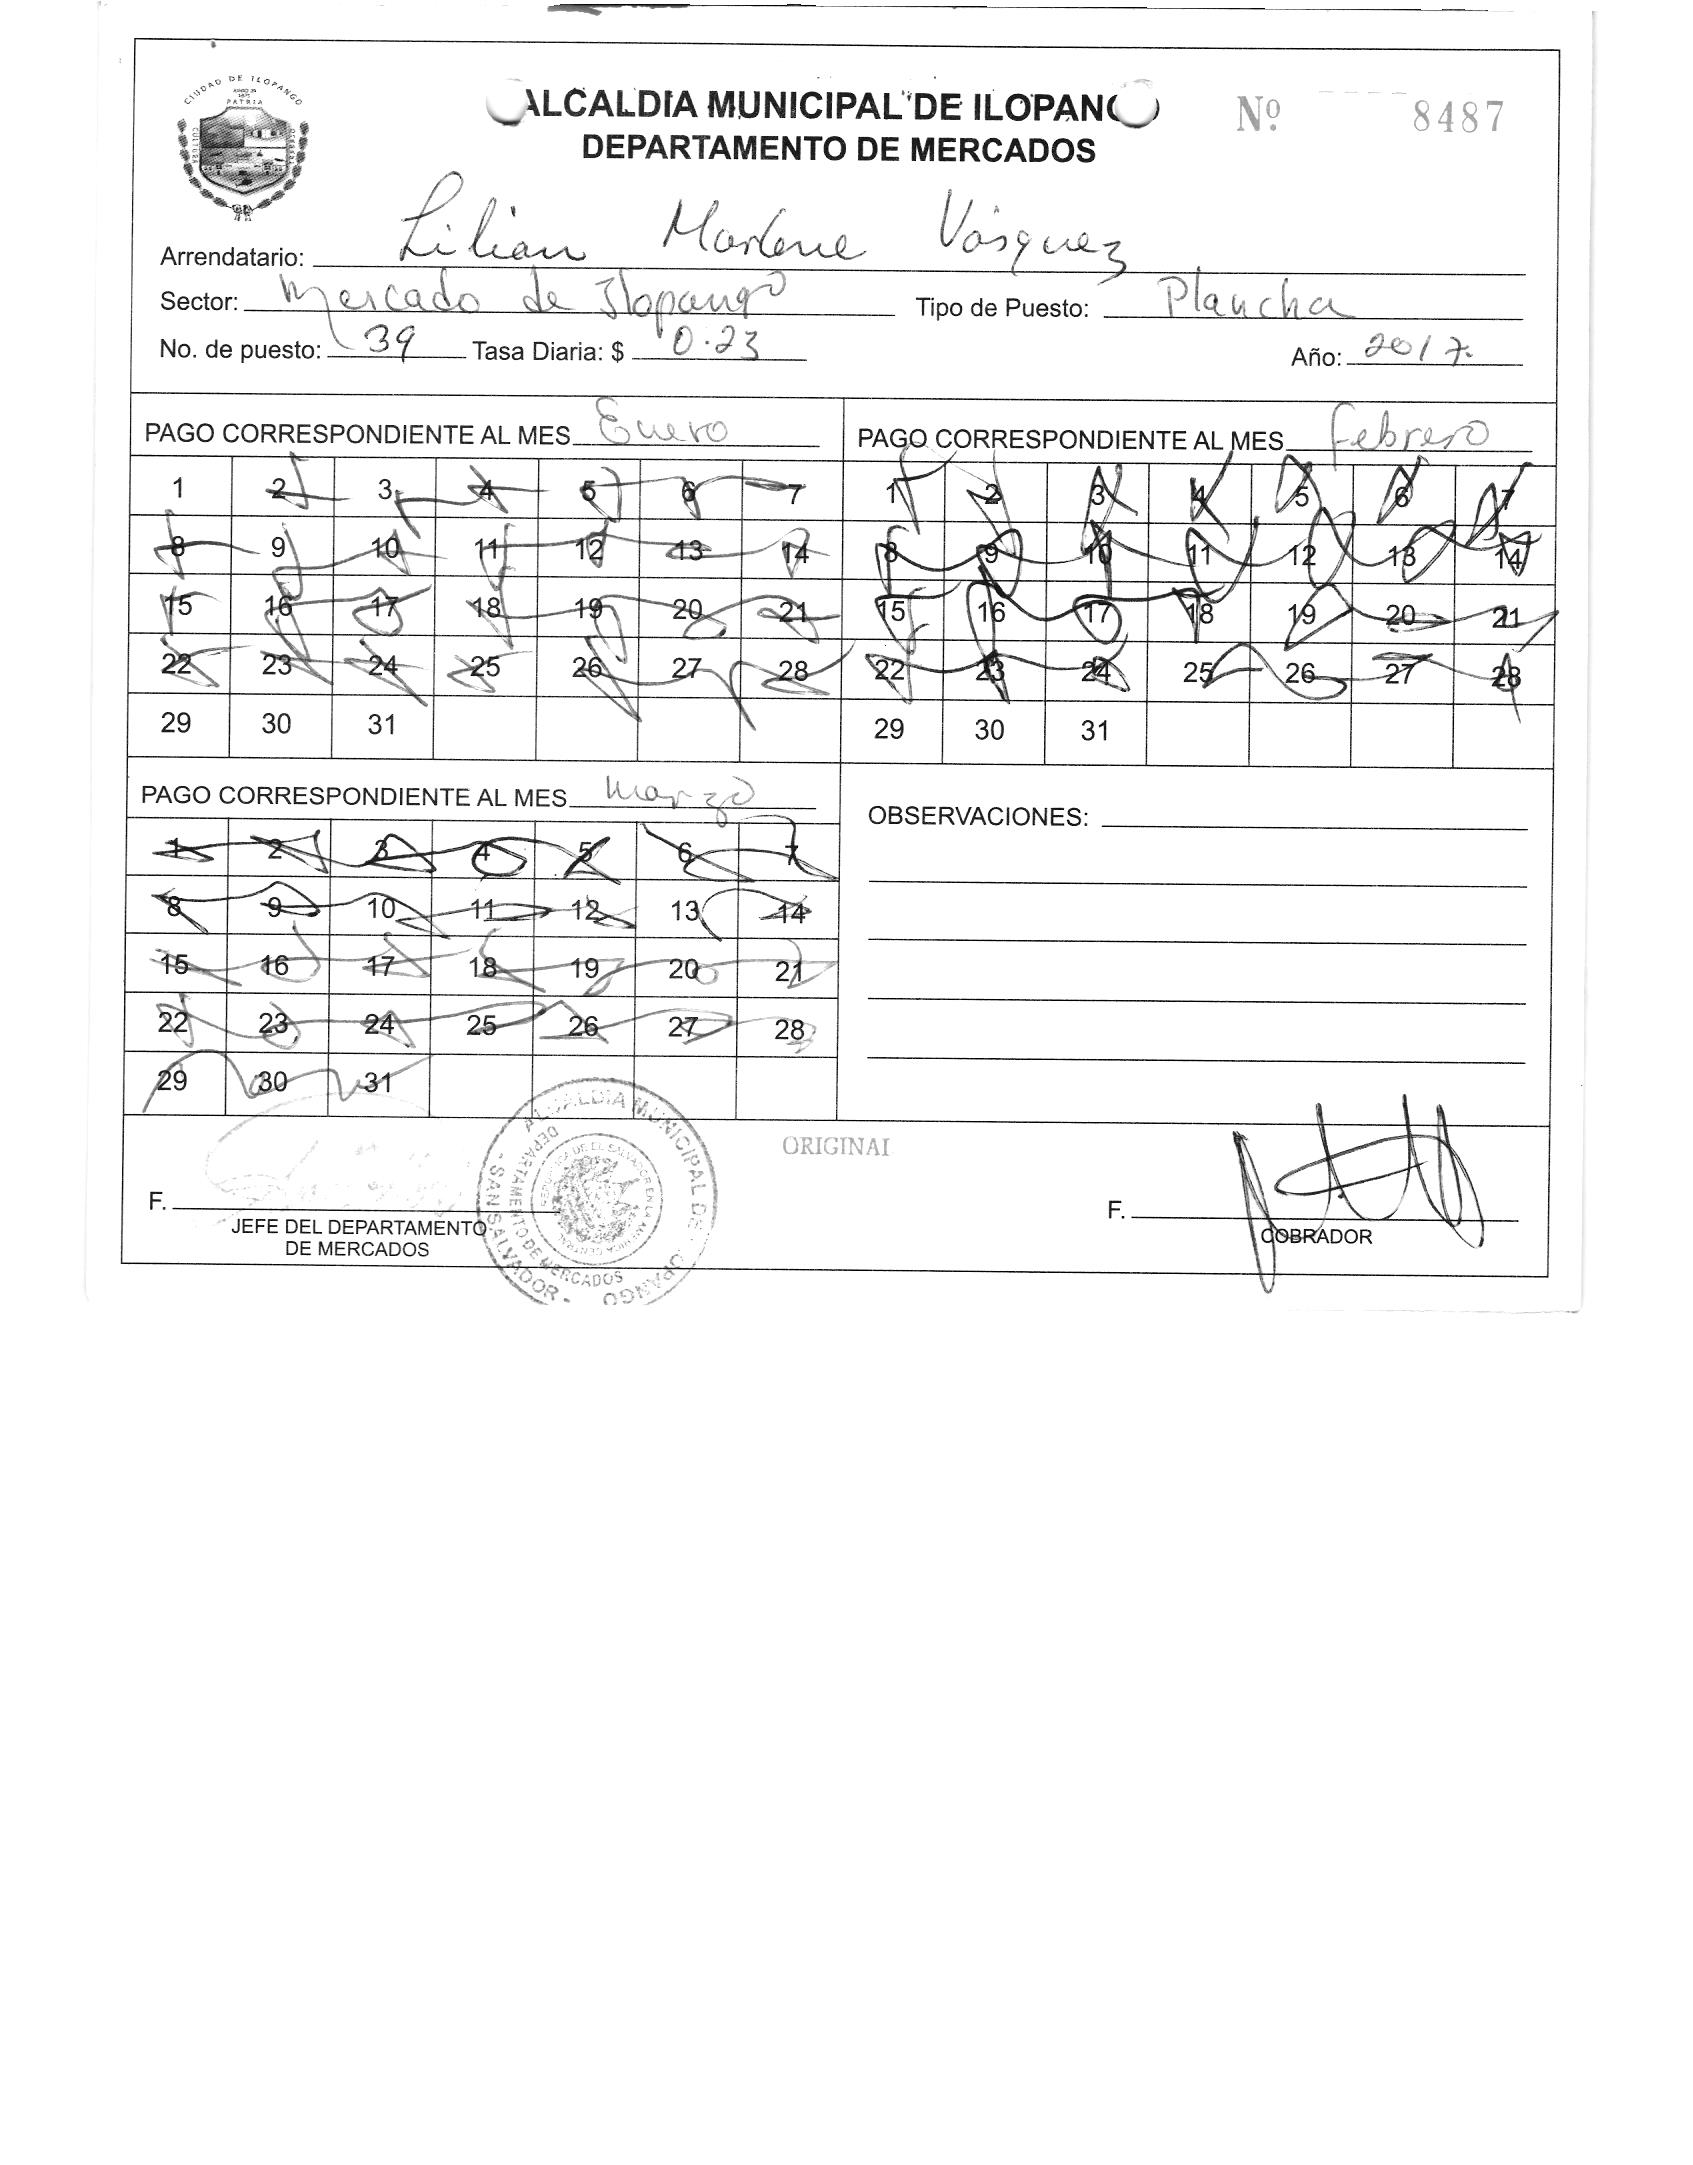 CIUDAD DE ILOPANGO
PATRIA
CULTURA
ALCALDIA MUNICIPAL DE ILOPANGO
DEPARTAMENTO DE MERCADOS
Nº 8487
Arrendatario: Lilian Marlene Vásquez
Sector: Mercado de Ilopango Tipo de Puesto: Plancha
No. de puesto: 39 Tasa Diaria: $ 0.23 Año: 2017.
PAGO CORRESPONDIENTE AL MES Enero
1 2 3 4 5 6 7
8 9 10 11 12 13 14
15 16 17 18 19 20 21
22 23 24 25 26 27 28
29 30 31
PAGO CORRESPONDIENTE AL MES Febrero
1 2 3 4 5 6 7
8 9 10 11 12 13 14
15 16 17 18 19 20 21
22 23 24 25 26 27 28
29 30 31
PAGO CORRESPONDIENTE AL MES Marzo
1 2 3 4 5 6 7
8 9 10 11 12 13 14
15 16 17 18 19 20 21
22 23 24 25 26 27 28
29 30 31
OBSERVACIONES:
ORIGINAL
F.
JEFE DEL DEPARTAMENTO
DE MERCADOS
ALCALDIA MUNICIPAL DE ILOPANGO
- SAN SALVADOR -
DEPARTAMENTO DE MERCADOS
F.
COBRADOR